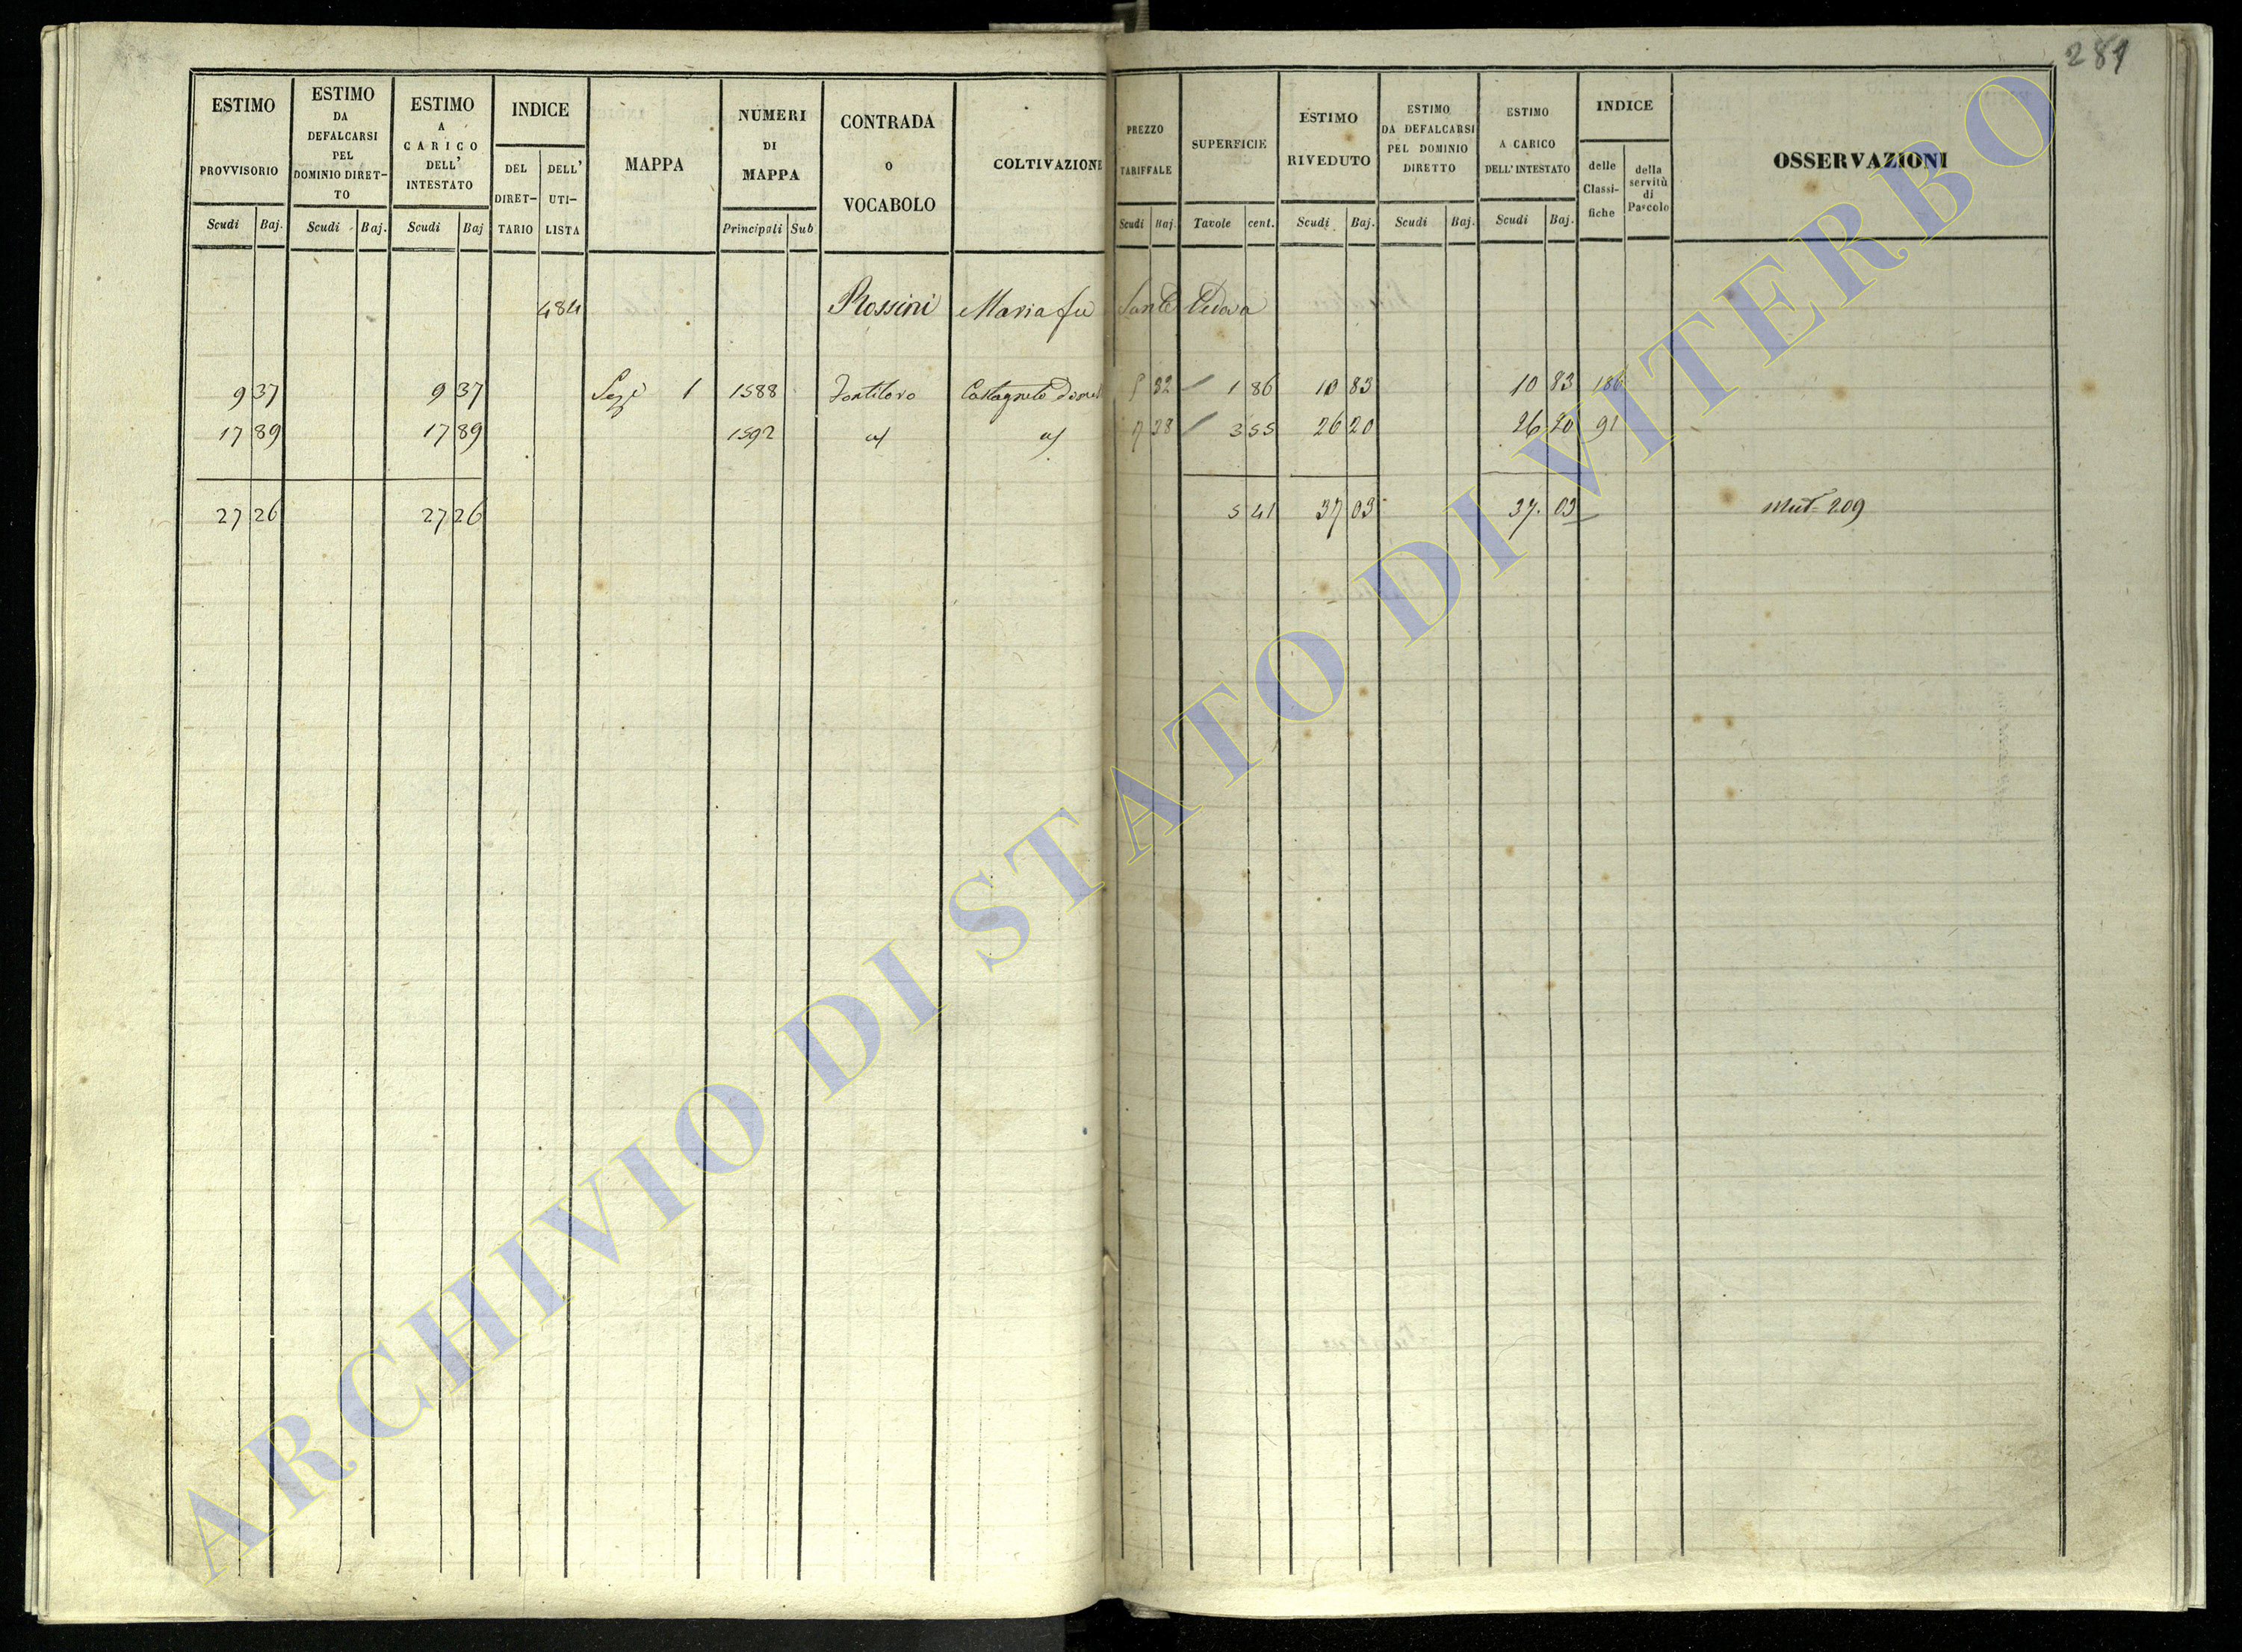 281
ESTIMO PROVVISORIO Scudi Baj.
ESTIMO DA DEFALCARSI PEL DOMINIO DIRET- TO Scudi Baj.
ESTIMO A CARICO DELL' INTESTATO Scudi Baj
INDICE DEL DIRET- TARIO DELL' UTI- LISTA
MAPPA
NUMERI DI MAPPA Principali Sub
CONTRADA O VOCABOLO
COLTIVAZIONE
PREZZO TARIFFALE Scudi Baj.
SUPERFICIE Tavole cent.
ESTIMO RIVEDUTO Scudi Baj.
ESTIMO DA DEFALCARSI PEL DOMINIO DIRETTO Scudi Baj.
ESTIMO A CARICO DELL' INTESTATO Scudi Baj.
INDICE delle Classi- fiche della servitù di Pascolo
OSSERVAZIONI
484 Rossini Maria fu Sante Vedova
9 37 9 37 Sez 1 1588 Castagneto 5 82 1 86 10 83 10 83 186
17 89 17 89 1592 7 38 3 55 26 20 26 20 91
27 26 27 26 5 41 37 03 37. 03 Mut. 209
ARCHIVIO DI STATO DI VITERBO